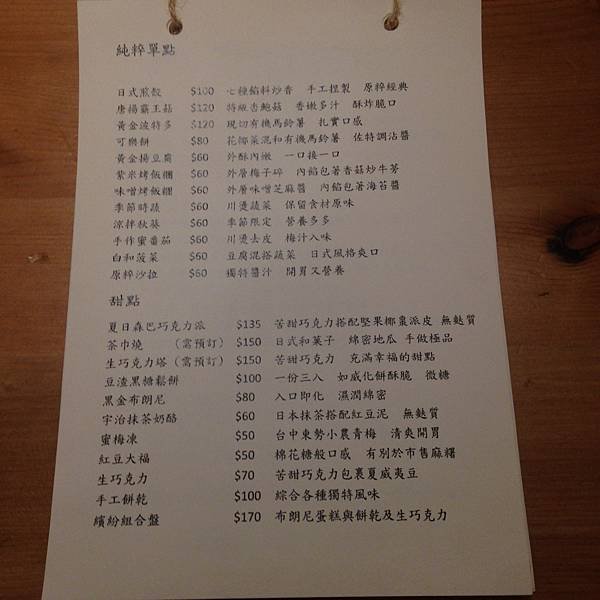 純粹單點
日式煎餃 $100 七種餡料炒香 手工捏製 原粹經典
唐揚霸王菇 $120 特級杏鮑菇 香嫩多汁 酥炸脆口
黃金波特多 $120 現切有機馬鈴薯 扎實口感
可樂餅 $80 花椰菜混和有機馬鈴薯 佐特調沾醬
黃金揚豆腐 $60 外酥內嫩 一口接一口
紫米烤飯糰 $60 外層梅子碎 內餡包著香菇炒牛蒡
味噌烤飯糰 $60 外層味噌芝麻醬 內餡包著海苔醬
季節時蔬 $60 川燙蔬菜 保留食材原味
涼拌秋葵 $60 季節限定 營養多多
手作蜜番茄 $60 川燙去皮 梅汁入味
白和菠菜 $60 豆腐混搭蔬菜 日式風格爽口
原粹沙拉 $60 獨特醬汁 開胃又營養
甜點
夏日森巴巧克力派 $135 苦甜巧克力搭配堅果椰棗派皮 無麩質
茶巾燒 (需預訂) $150 日式和菓子 綿密地瓜 手做極品
生巧克力塔 (需預訂) $150 苦甜巧克力 充滿幸福的甜點
豆渣黑糖鬆餅 $100 一份三入 如威化餅酥脆 微糖
黑金布朗尼 $80 入口即化 濕潤綿密
宇治抹茶奶酪 $60 日本抹茶搭配紅豆泥 無麩質
蜜梅凍 $50 台中東勢小農青梅 清爽開胃
紅豆大福 $50 棉花糖般口感 有別於市售麻糬
生巧克力 $70 苦甜巧克力包裹夏威夷豆
手工餅乾 $100 綜合各種獨特風味
繽紛組合盤 $170 布朗尼蛋糕與餅乾及生巧克力